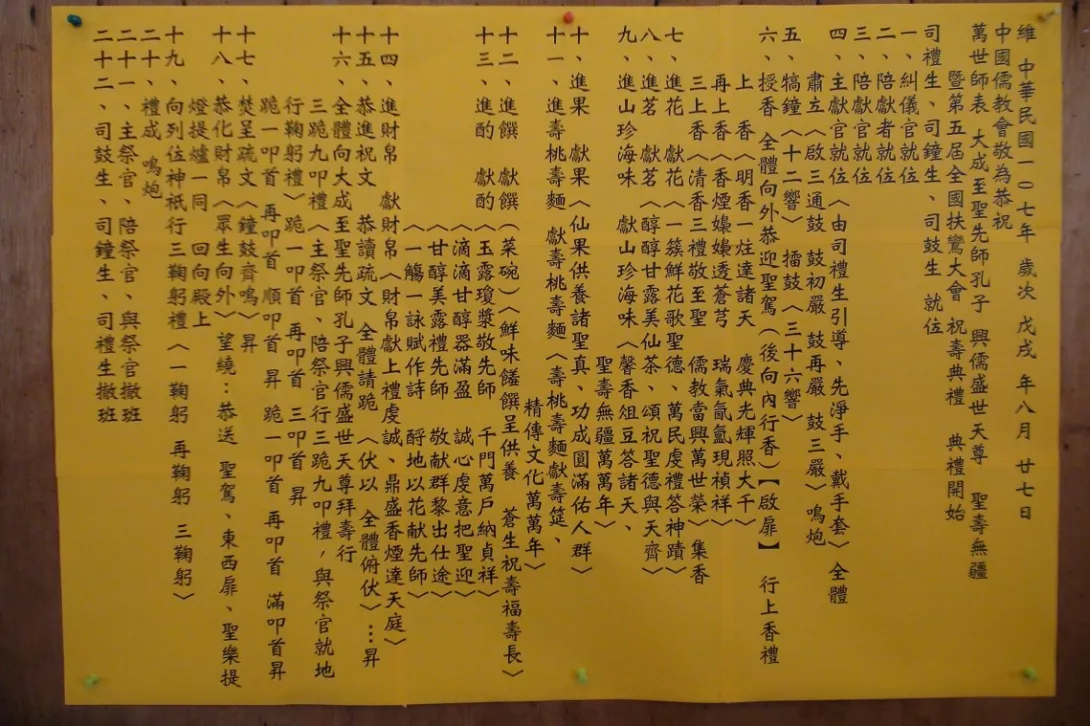 維 中華民國一〇七年 歲次 戊戌 年八月 廿七日
中國儒教會敬為恭祝
萬世師表 大成至聖先師孔子 興儒盛世天尊 聖壽無疆
暨第五屆全國扶鸞大會 祝壽典禮 典禮開始
司禮生、司鐘生、司鼓生 就位
一、糾儀官就位
二、陪獻者就位
三、陪獻官就位
四、主獻官就位〈由司禮生引導、先淨手、戴手套〉全體
肅立〈啟三通鼓 鼓初嚴 鼓再嚴 鼓三嚴〉鳴炮
五、犒鐘〈十二響〉 擂鼓〈三十六響〉
六、授香 全體向外恭迎聖駕（後向內行香）【啟扉】 行上香禮
上 香〈明香一炷達諸天 慶典光輝照大千〉
再上香〈香煙嬝嬝透蒼芎 瑞氣氤氳現禎祥〉
三上香〈清香三禮敬至聖 儒教當興萬世榮〉集香
七、進花 獻花〈一簇鮮花歌聖德、萬民虔禮答神蹟〉
八、進茗 獻茗〈醇醇甘露美仙茶、頌祝聖德與天齊〉
九、進山珍海味 獻山珍海味〈馨香俎豆答諸天、
聖壽無疆萬萬年〉
十、進果 獻果〈仙果供養諸聖真、功成圓滿佑人群〉
十一、進壽桃壽麵 獻壽桃壽麵〈壽桃壽麵獻壽筵、
精傳文化萬萬年〉
十二、進饌 獻饌（菜碗）〈鮮味饈饌呈供養 蒼生祝壽福壽長〉
十三、進酌 獻酌〈玉露瓊漿敬先師 千門萬戶納貞祥〉
〈滴滴甘醇器滿盈 誠心虔意把聖迎〉
〈甘醇美露禮先師 敬献群黎出仕途〉
〈一觴一詠賦作詩 酹地以花献先師〉
十四、進財帛 獻財帛〈財帛獻上禮虔誠、鼎盛香煙達天庭〉
十五、恭進祝文 恭讀疏文 全體請跪 〈伏以 全體俯伏〉…昇
十六、全體向大成至聖先師孔子興儒盛世天尊拜壽行
三跪九叩禮〈主祭官、陪祭官行三跪九叩禮，與祭官就地
行鞠躬禮〉跪一叩首 再叩首 三叩首 昇
跪一叩首 再叩首 順叩首 昇 跪一叩首 再叩首 滿叩首昇
十七、焚呈疏文〈鐘鼓齊鳴〉昇
十八、恭化財帛〈眾生向外〉望繞：恭送 聖駕、東西扉、聖樂提
燈提爐一同 回向殿上
十九、向列位神祇行三鞠躬禮〈一鞠躬 再鞠躬 三鞠躬〉
二十、禮成 鳴炮
二十一、主祭官、陪祭官、與祭官撤班
二十二、司鼓生、司鐘生、司禮生撤班